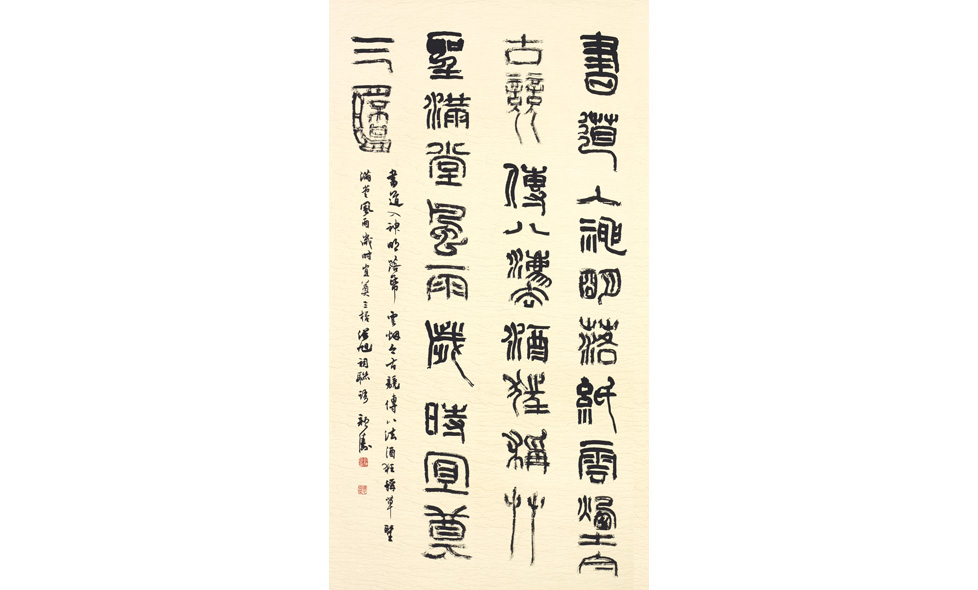 書道入神明落紙雲煙今
古競傳八法酒狂稱草
聖滿堂風雨歲時宜奠
三杯
書道入神明落紙雲烟今古競傳八法酒狂稱草聖
滿堂風雨歲時宜奠三杯張旭祠聯語